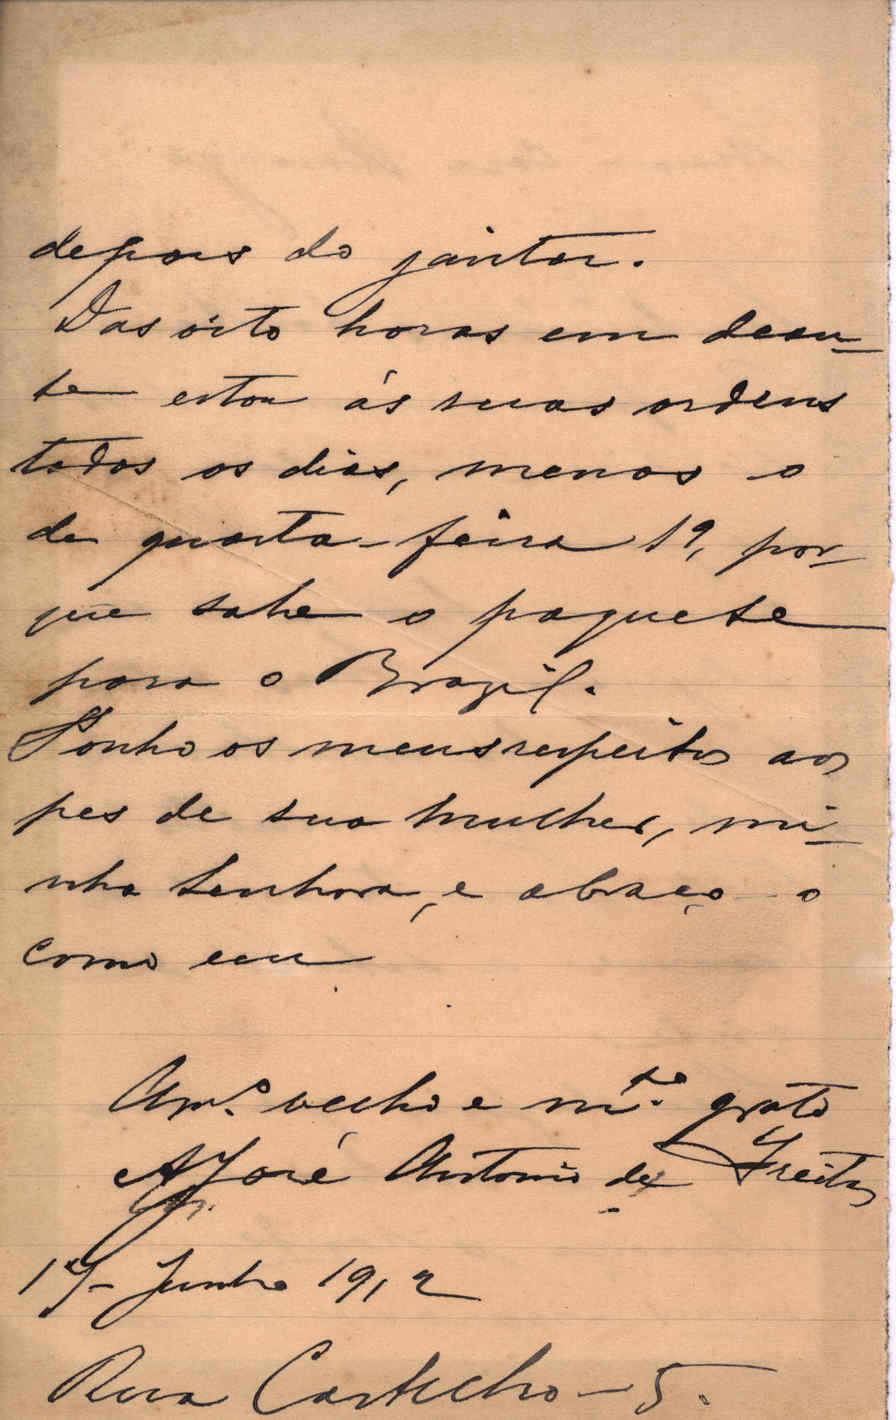 depois do jantar.
Das oito horas em dean-
te estou ás suas ordens
todos os dias, menos o
de quarta-feira 19, por-
que sahe o paquete
para o Brazil.
Ponho os meus respeitos aos
pes de sua mulher, mi-
nha Senhora, e abraço-o
como seu
Am.º velho e m.to grato
José Antonio de Freitas
17- Junho 1912
Rua Castilho - 5.